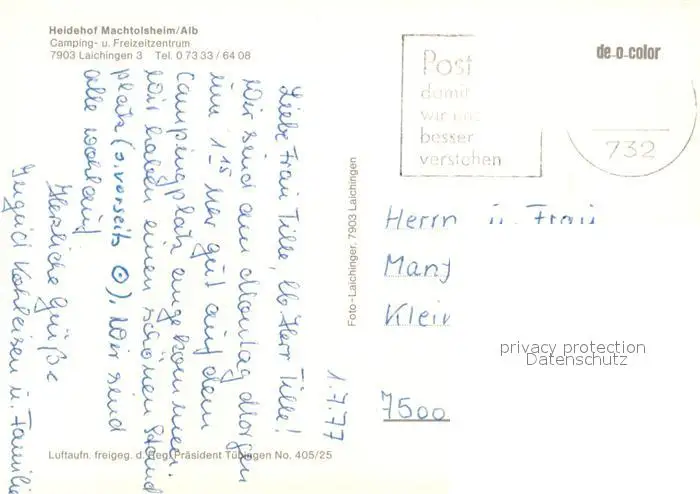 Heidehof Machtolsheim/Alb
Camping- u. Freizeitzentrum
7903 Laichingen 3 Tel. 0 73 33 / 64 08
1.7.77
Liebe Frau Tille, lb Herr Tille!
Wir sind am Montag Morgen
um 1 15 Uhr gut auf dem
Campingplatz angekommen.
Wir haben einen schönen Stand
platz (s. Vorseite ⊙). Wir sind
alle wohlauf
Herzliche Grüße
Ingrid u. Familie
Luftaufn. freigeg. d. Reg. Präsident Tübingen No. 405/25
Foto-Laichinger, 7903 Laichingen
Post
damit
wir uns
besser
verstehen
de-o-color
732
Herrn u. Frau
Manf
Klein
7500
privacy protection
Datenschutz